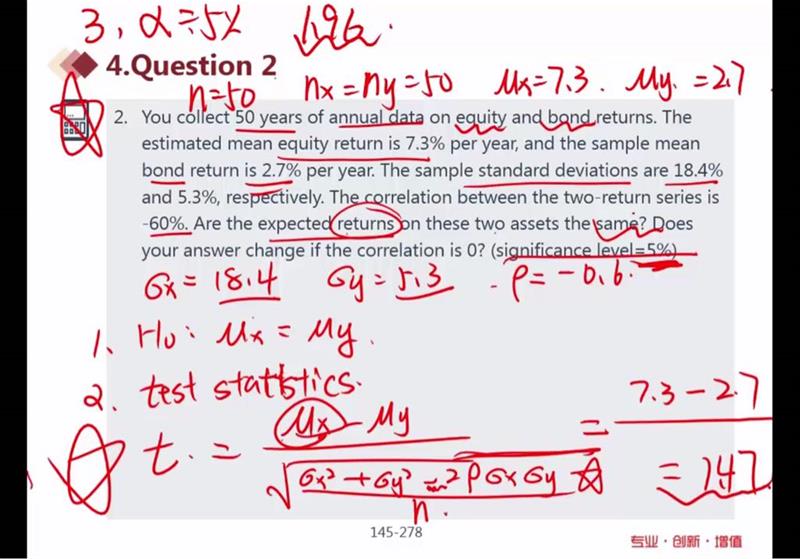 3, α = 5% 1.96.
4.Question 2
n=50 nx = ny = 50 μx=7.3. μy. = 2.7
2. You collect 50 years of annual data on equity and bond returns. The
estimated mean equity return is 7.3% per year, and the sample mean
bond return is 2.7% per year. The sample standard deviations are 18.4%
and 5.3%, respectively. The correlation between the two-return series is
-60%. Are the expected returns on these two assets the same? Does
your answer change if the correlation is 0? (significance level=5%)
σx = 18.4 σy = 5.3 ρ = -0.6.
1. H0: μx = μy.
2. test statistics.
7.3 - 2.7
μx - μy
t. = =
√σx² + σy² - 2ρσxσy
= 1.47
n.
145-278
专业·创新·增值